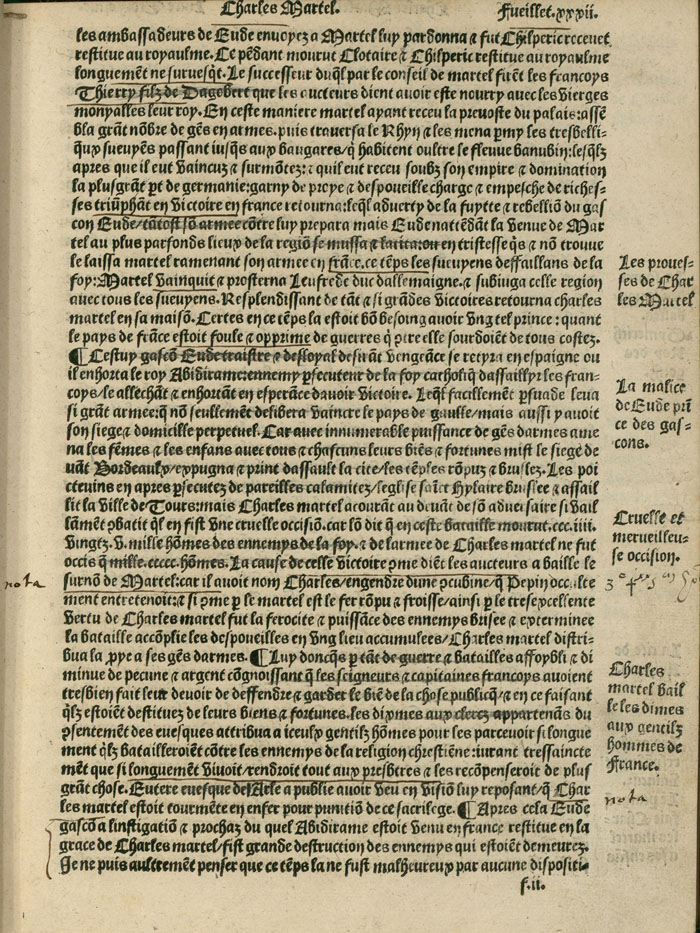 Charles Martel.
Fueillet.xxxii.
les ambassadeurs de Eude enuoyez a Martel luy pardonna & fut Chilperic receuet
restitue au royaulme. Ce pēdant mourut Clotaire & Chilperic restitue au royaulme
longuemēt ne suruesq̄t. Le successeur duq̄l par le conseil de martel firēt les francoys
Thierry filz de Dagobert que les aucteurs dient auoir este nourry auec les vierges
monyalles leur roy. En ceste maniere martel ayant receu la preuoste du palais: assē
bla grāt nōbre de gēs en armes. puis trauersa le Rhyn & les mena p̱my les tresbelli-
qux sueuyēs passant iusq̄s aux baugares/q̄ habitent oultre le fleuue danubin: lesq̄lz
apres que il eut vaincuz & surmōtez: & quil eut receu soubz son empire & domination
la plusgrāt p̱t de germanie: garny de proye & despoueille charge & empesche de riches-
ses triūphāt en victoire en france retourna: leq̄l aduerty de la fuytte & rebelliō du gas
con Eude/tātost sō armee cōtre luy prepara mais Eude nattēdāt la venue de Mar
tel au plus parfonds lieux de la regiō se mussa & latitaron en tristesse q̄s & nō trouue
le laissa martel ramenant son armee en frāce. ce tēps les sueuyens deffaillans de la
foy: Martel vainquit & prosterna Leufrede duc dallemaigne. & subiuga celle region
auec tous les sueuyens. Resplendissant de tāt & si grādes victoires retourna charles
martel en sa maisō. Certes en ce tēps la estoit bō besoing auoir vng tel prince: quant
le pays de frāce estoit foule & opprime de guerres q̄ ꝯtre elle sourdoiēt de tous costez.
¶ Cestuy gascō Eude traistre & desloyal desirāt vengeāce se retyra en espaigne ou
il enhorta le roy Abidirame: ennemy p̱secuteur de la foy catholiq̄ dassaillyr les fran-
coys/le allechāt & enhortāt en esperāce dauoir victoire. Leq̄l facillemēt p̱suade leua
si grāt armee: q̄ nō seullemēt delibera vaincre le pays de gaulle/mais aussi y auoit
son siege & domicille perpetuel. Car auec innumerable puissance de gēs darmes ame
na les fēmes & les enfans auec tous & chascuns leurs biēs & fortunes mist le siege de
uāt Bordeaulx/expugna & print dassault la cite/les tēples rōpuz & bruslez. Les poi
cteuins en apres p̱secutez de pareilles calamitez/leglise saīct Hylaire bruslee & assail
lit la ville de Tours: mais Charles martel acourāt au deuāt de sō aduersaire si vail
lāmēt ꝯbatit q̄l en fist vne cruelle occisiō. car lō dit q̄ en ceste bataille mourut.ccc.iiii.
vingtz.v. mille hōmes des ennemys de la foy. & de larmee de Charles martel ne fut
occis q̄ mille.ccccc.hōmes. La cause de celle victoire ꝯme diēt les aucteurs a baille le
surnō de Martel: car il auoit nom Charles/engendre dune ꝯcubine/q̄ Pepin occulte
ment entretenoit: & si ꝯme p̱ le martel est le fer rōpu & froisse/ainsi p̱ le tresexcellente
vertu de Charles martel fut la ferocite & puissāce des ennemys brisee & exterminee
la bataille accōplie les despoueilles en vng lieu accumulees/Charles martel distri-
bua la ꝓye a ses gēs darmes. ¶ Luy doncq̄s p̱ tāt de guerre & batailles affoybli & di
minue de pecune & argent cōgnoissant q̄ les seigneurs & capitaines francoys auoient
tresbien fait leur deuoir de deffendre & garder le biē de la chose publicq̄/& en ce faisant
q̄lz estoiēt destituez de leurs biens & fortunes. les dixmes aux clercz appartenās du
ꝯsentement des euesques attribua a iceulx gentilz hōmes pour les parceuoir si longue
ment q̄lz batailleroiēt cōtre les ennemys de la religion chrestiēne: iurant tressaincte
mēt que si longuemēt viuoit/rendroit tout aux presbtres & les recōpenseroit de plus
grāt chose. Eutere euesque de Arle a publie auoir veu en visiō luy reposant/q̄ Char
les martel estoit tourmēte en enfer pour punitiō de ce sacrilege. ¶ Apres cela Eude
gascō a linstigatiō & prochaz du quel Abidirame estoit venu en france restitue en la
grace de Charles martel/fist grande destruction des ennemys qui estoiēt demeurez.
Je ne puis aultrement penser que ce tēps la ne fust malheureux par aucune dispositi-
f.ii.
Les prouesses
ses de Char
les Martel
La malice
de Eude prī
ce des gas-
cons.
Cruelle et
merueilleu-
se occision.
nota
Charles
martel bail
le les dimes
aux gentilz
hommes de
France.
nota